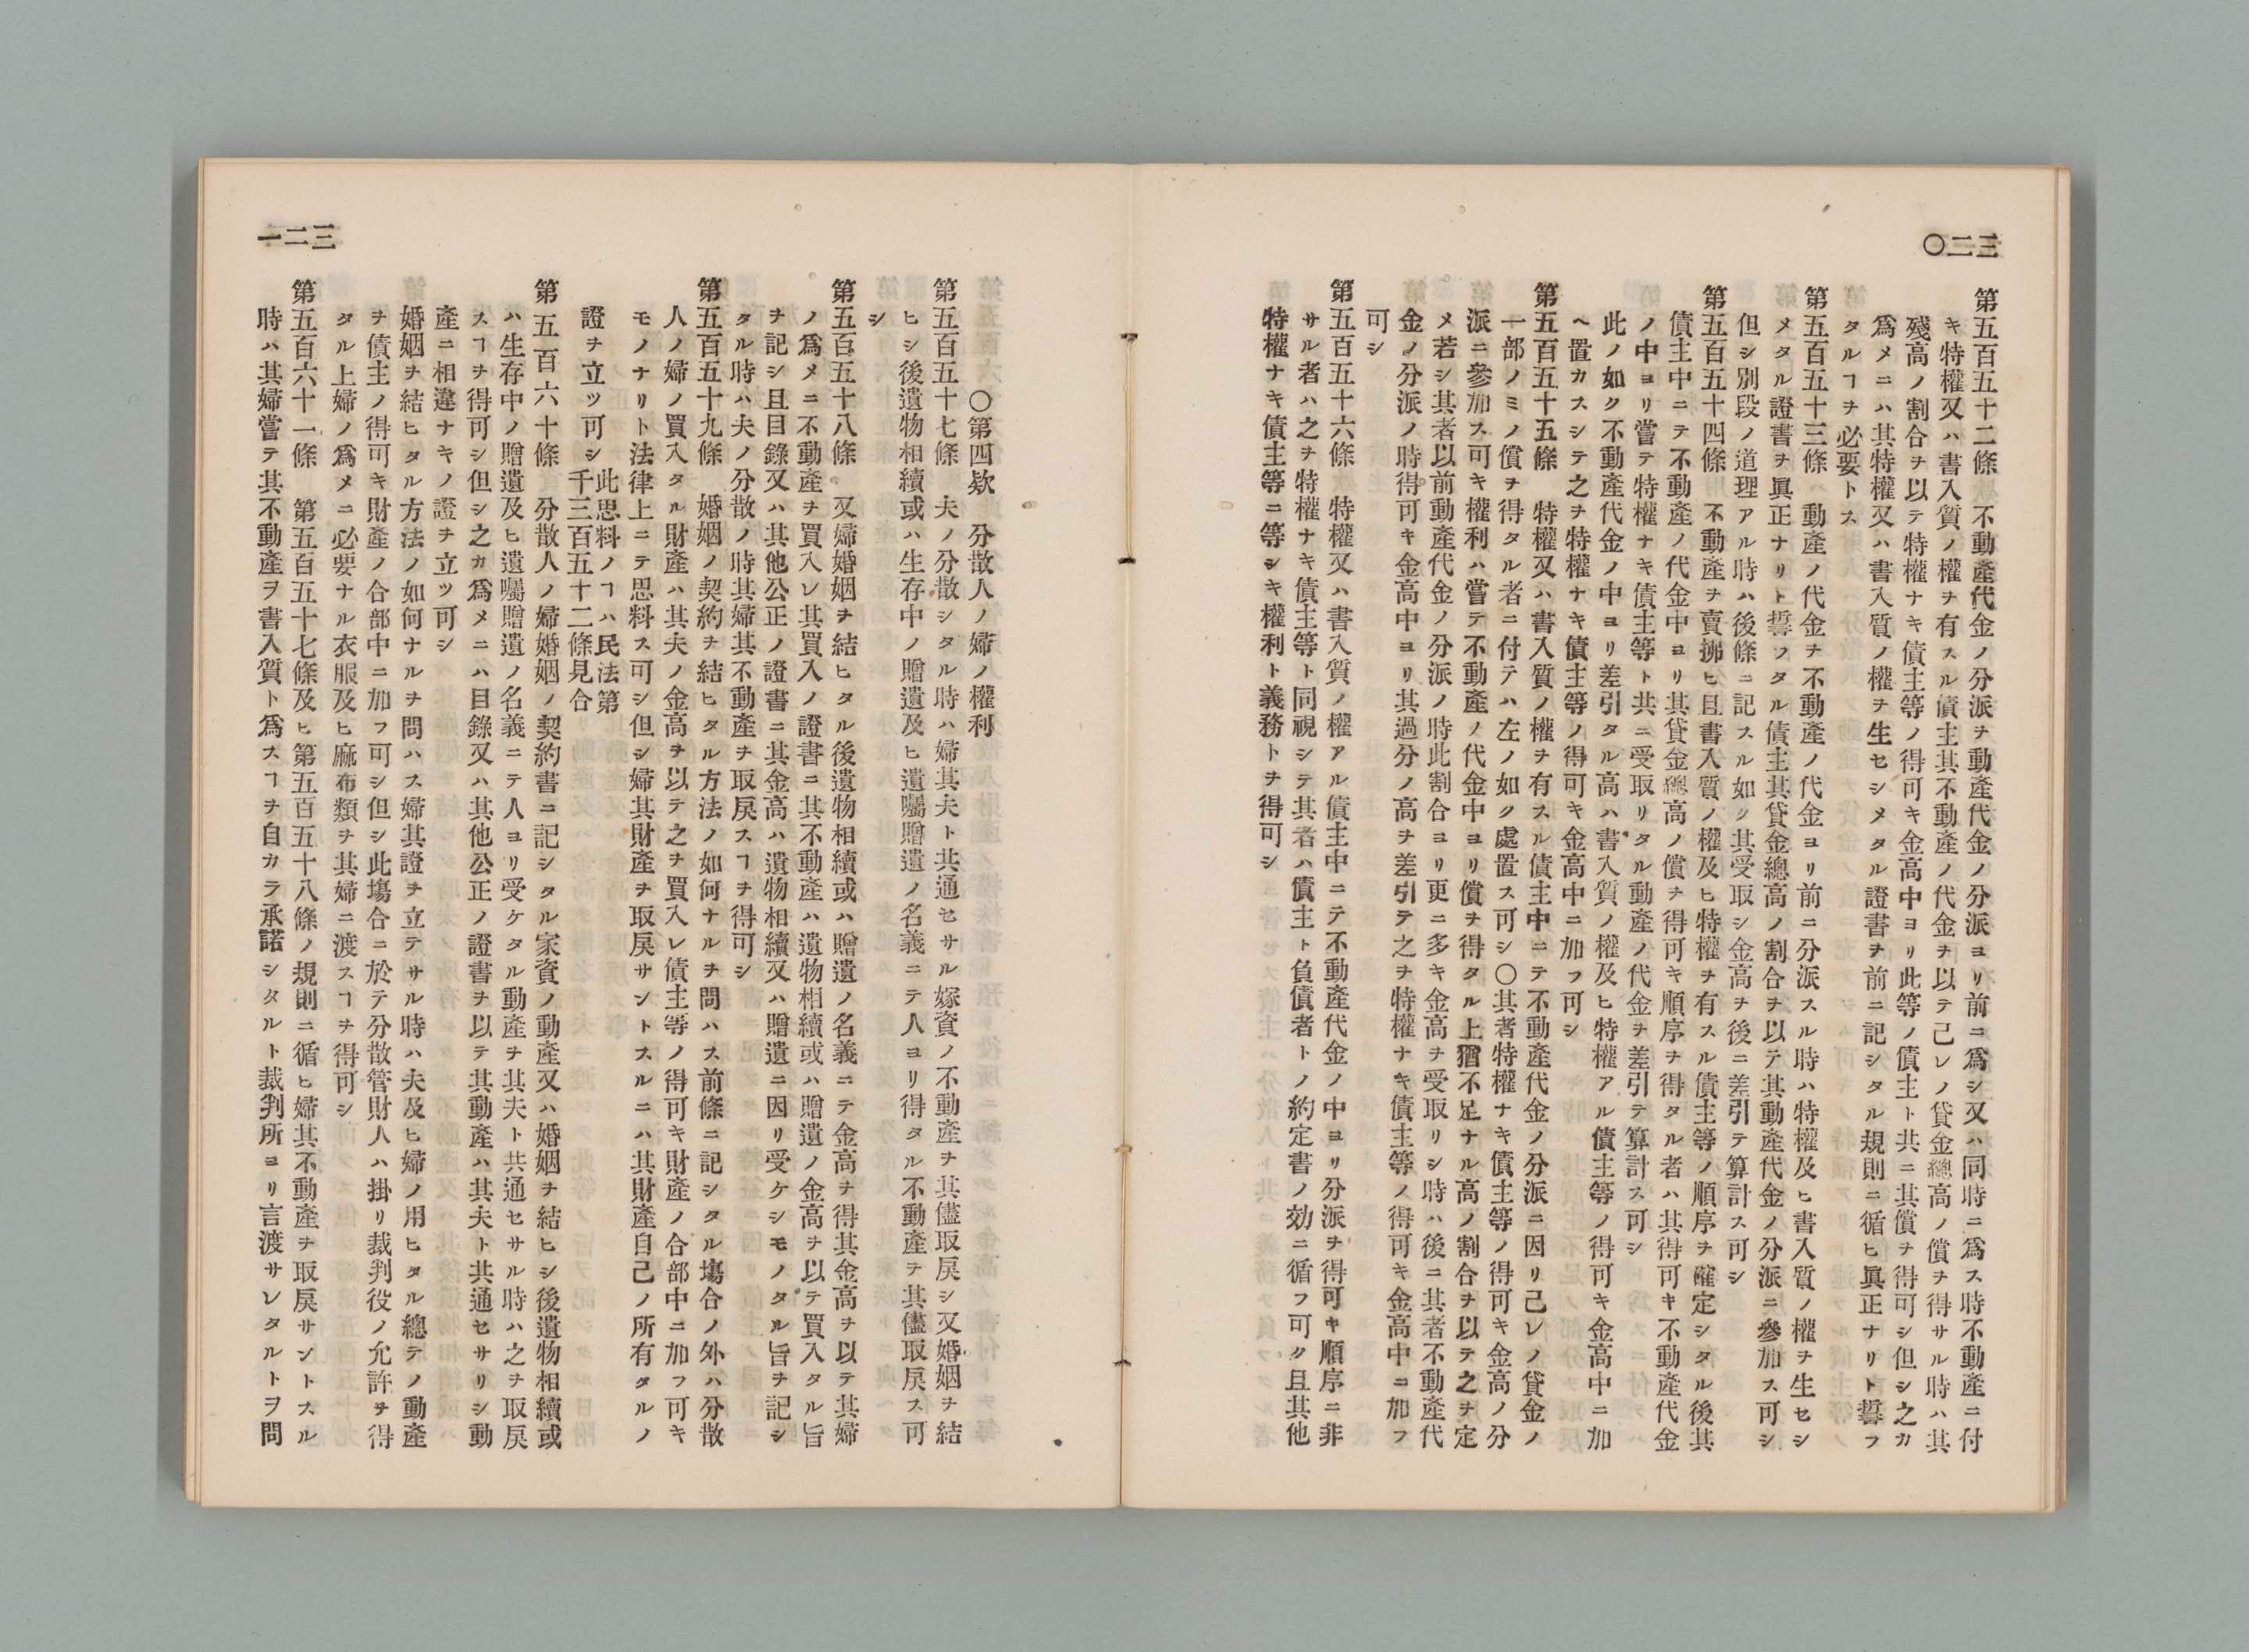 三二〇
第五百五十二條　不動產代金ノ分派ヲ動產代金ノ分派ヨリ前ニ爲シ又ハ同時ニ爲ス時不動產ニ付
キ特權又ハ書入質ノ權ヲ有スル債主其不動產ノ代金ヲ以テ己レノ貸金總高ノ償ヲ得サル時ハ其
殘高ノ割合ヲ以テ特權ナキ債主等ノ得可キ金高中ヨリ此等ノ債主ト共ニ其償ヲ得可シ但シ之カ
爲メニハ其特權又ハ書入質ノ權ヲ生セシメタル證書ヲ前ニ記シタル規則ニ循ヒ眞正ナリト誓フ
タルヿヲ必要トス
第五百五十三條　動產ノ代金ヲ不動產ノ代金ヨリ前ニ分派スル時ハ特權及ヒ書入質ノ權ヲ生セシ
メタル證書ヲ眞正ナリト誓フタル債主其貸金總高ノ割合ヲ以テ其動產代金ノ分派ニ參加ス可シ
但シ別段ノ道理アル時ハ後條ニ記スル如ク其受取シ金高ヲ後ニ差引テ算計ス可シ
第五百五十四條　不動產ヲ賣拂ヒ且書入質ノ權及ヒ特權ヲ有スル債主等ノ順序ヲ確定シタル後其
債主中ニテ不動產ノ代金中ヨリ其貸金總高ノ償ヲ得可キ順序ヲ得タル者ハ其得可キ不動產代金
ノ中ヨリ嘗テ特權ナキ債主等ト共ニ受取リタル動產ノ代金ヲ差引テ算計ス可シ
此ノ如ク不動產代金ノ中ヨリ差引タル高ハ書入質ノ權及ヒ特權アル債主等ノ得可キ金高中ニ加
ヘ置カスシテ之ヲ特權ナキ債主等ノ得可キ金高中ニ加フ可シ
第五百五十五條　特權又ハ書入質ノ權ヲ有スル債主中ニテ不動產代金ノ分派ニ因リ己レノ貸金ノ
一部ノミノ償ヲ得タル者ニ付テハ左ノ如ク處置ス可シ〇其者特權ナキ債主等ノ得可キ金高ノ分
派ニ參加ス可キ權利ハ嘗テ不動產ノ代金中ヨリ償ヲ得タル上猶不足ナル高ノ割合ヲ以テ之ヲ定
メ若シ其者以前動產代金ノ分派ノ時此割合ヨリ更ニ多キ金高ヲ受取リシ時ハ後ニ其者不動產代
金ノ分派ノ時得可キ金高中ヨリ其過分ノ高ヲ差引テ之ヲ特權ナキ債主等ノ得可キ金高中ニ加フ
可シ
第五百五十六條　特權又ハ書入質ノ權アル債主中ニテ不動產代金ノ中ヨリ分派ヲ得可キ順序ニ非
サル者ハ之ヲ特權ナキ債主等ト同視シテ其者ハ債主ト負債者トノ約定書ノ効ニ循フ可ク且其他
特權ナキ債主等ニ等シキ權利ト義務トヲ得可シ
三二一
〇第四欵　分散人ノ婦ノ權利
第五百五十七條　夫ノ分散シタル時ハ婦其夫ト共通セサル嫁資ノ不動產ヲ其儘取戾シ又婚姻ヲ結
ヒシ後遺物相續或ハ生存中ノ贈遺及ヒ遺囑贈遺ノ名義ニテ人ヨリ得タル不動產ヲ其儘取戾ス可
シ
第五百五十八條　又婦婚姻ヲ結ヒタル後遺物相續或ハ贈遺ノ名義ニテ金高ヲ得其金高ヲ以テ其婦
ノ爲メニ不動產ヲ買入レ其買入ノ證書ニ其不動產ハ遺物相續或ハ贈遺ノ金高ヲ以テ買入タル旨
ヲ記シ且目錄又ハ其他公正ノ證書ニ其金高ハ遺物相續又ハ贈遺ニ因リ受ケシモノタル旨ヲ記シ
タル時ハ夫ノ分散ノ時其婦其不動產ヲ取戾スヿヲ得可シ
第五百五十九條　婚姻ノ契約ヲ結ヒタル方法ノ如何ナルヲ問ハス前條ニ記シタル塲合ノ外ハ分散
人ノ婦ノ買入タル財產ハ其夫ノ金高ヲ以テ之ヲ買入レ債主等ノ得可キ財產ノ合部中ニ加フ可キ
モノナリト法律上ニテ思料ス可シ但シ婦其財產ヲ取戾サントスルニハ其財產自己ノ所有タルノ
證ヲ立ツ可シ
此思料ノヿハ民法第
千三百五十二條見合
第五百六十條　分散人ノ婦婚姻ノ契約書ニ記シタル家資ノ動產又ハ婚姻ヲ結ヒシ後遺物相續或
ハ生存中ノ贈遺及ヒ遺囑贈遺ノ名義ニテ人ヨリ受ケタル動產ヲ其夫ト共通セサル時ハ之ヲ取戾
スヿヲ得可シ但シ之カ爲メニハ目錄又ハ其他公正ノ證書ヲ以テ其動產ハ其夫ト共通セサリシ動
產ニ相違ナキノ證ヲ立ツ可シ
婚姻ヲ結ヒタル方法ノ如何ナルヲ問ハス婦其證ヲ立テサル時ハ夫及ヒ婦ノ用ヒタル總テノ動產
ヲ債主ノ得可キ財產ノ合部中ニ加フ可シ但シ此塲合ニ於テ分散管財人ハ掛リ裁判役ノ允許ヲ得
タル上婦ノ爲メニ必要ナル衣服及ヒ麻布類ヲ其婦ニ渡スヿヲ得可シ
第五百六十一條　第五百五十七條及ヒ第五百五十八條ノ規則ニ循ヒ婦其不動產ヲ取戾サントスル
時ハ其婦嘗テ其不動產ヲ書入質ト爲スヿヲ自カラ承諾シタルト裁判所ヨリ言渡サレタルトヲ問